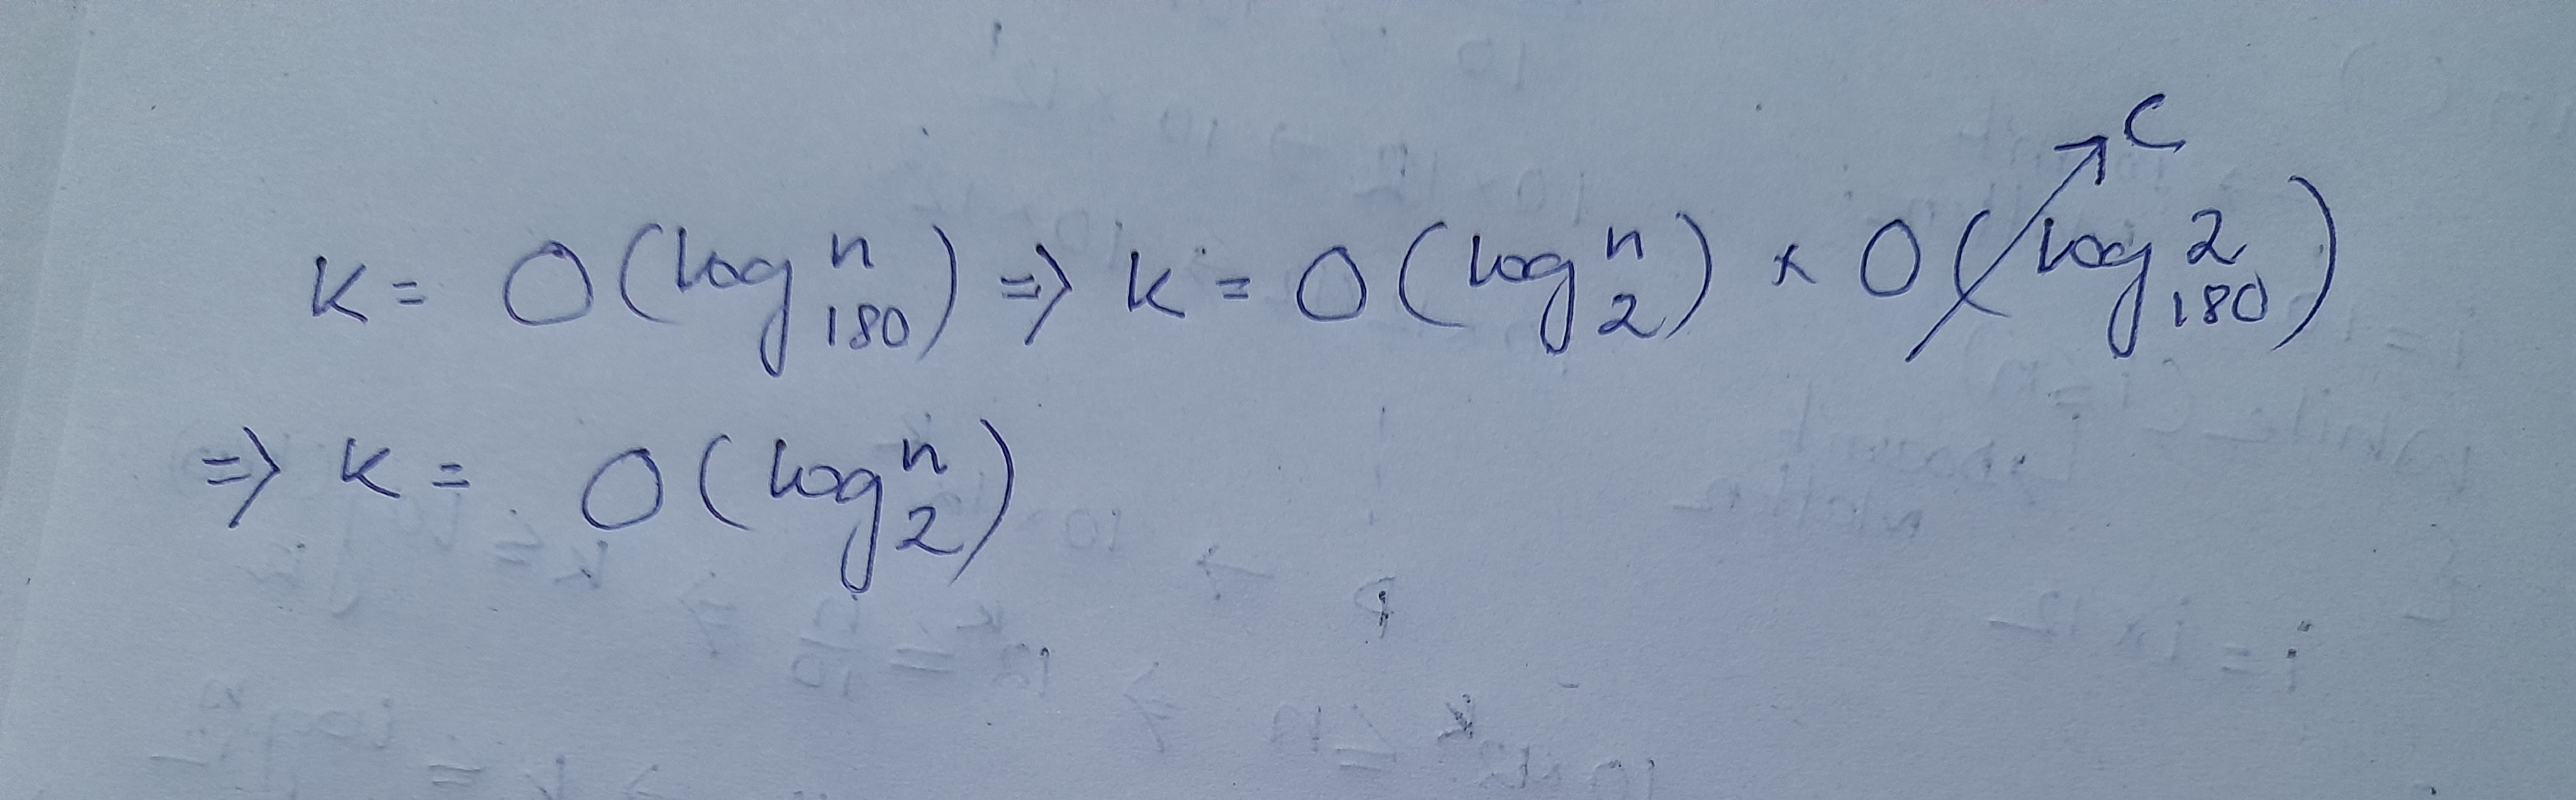 K = O(log₁₈₀ⁿ) => K = O(log₂ⁿ) × O(log₁₈₀²) ↗ C
=> K = O(log₂ⁿ)